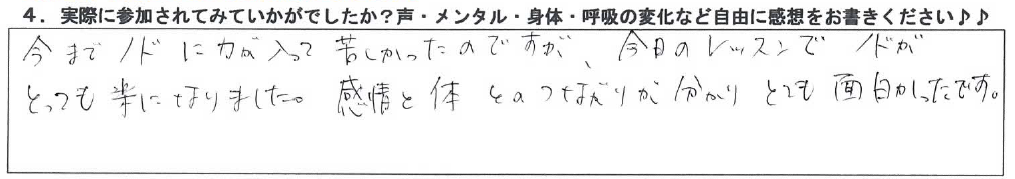 4．実際に参加されてみていかがでしたか？声・メンタル・身体・呼吸の変化など自由に感想をお書きください♪♪
今まで ノドに力が入って 苦しかったのですが、今日のレッスンで ノドが
とっても 楽になりました。感情と体とのつながりが分かり とても面白かったです。